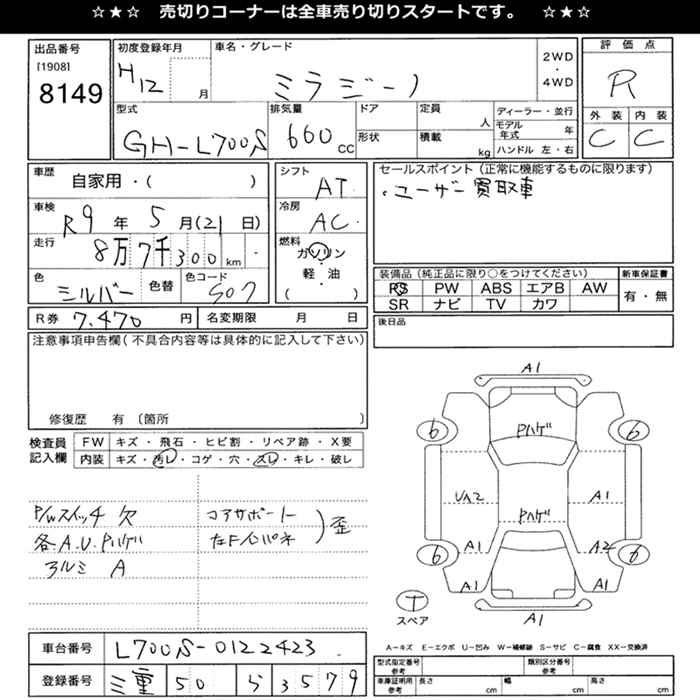 ☆★☆ 売切りコーナーは全車売り切りスタートです。 ☆★☆
出品番号
[1908]
8149
初度登録年月
H12 月
車名・グレード
ミラジーノ
2WD
・
4WD
評価点
R
外装 内装
C C
型式
GH-L700S
排気量
660 CC
ドア
形状
定員 人
積載 kg
ディーラー・並行
モデル年式 年
ハンドル 左・右
車歴 自家用・( )
車検 R9 年 5 月(21日)
走行 8万7千300 km
色 シルバー 色替
色コード S07
シフト AT
冷房 AC
燃料 ガソリン
・
軽油
( )
セールスポイント(正常に機能するものに限ります)
・ユーザー買取車
装備品(純正品に限り○をつけてください)
PS PW ABS エアB AW
SR ナビ TV カワ
新車保証書
有・無
R券 7,470 円 名変期限 月 日
後日品
注意事項申告欄(不具合内容等は具体的に記入して下さい)
修復歴 有 〔箇所 〕
検査員
記入欄
FW キズ・飛石・ヒビ割・リペア跡・X要
内装 キズ・汚レ・コゲ・穴・スレ・キレ・破レ
P/Wスイッチ 欠
各.A.U.Pハゲ
アルミ A
コアサポート
左Fインパネ
歪
A1
6 Pハゲ 6
UA2 A1
Pハゲ
A1 A2
6 6
A1 A1
T
スペア
A1
A-キズ E-エクボ U-凹み W-補修跡 S-サビ C-腐食 XX-交換済
車台番号 L700S-0122423
登録番号 三重 50 ら 3579
型式指定番号
参考
類別区分番号
参考
車庫証明用
参考
長さ cm 幅 cm 高さ cm